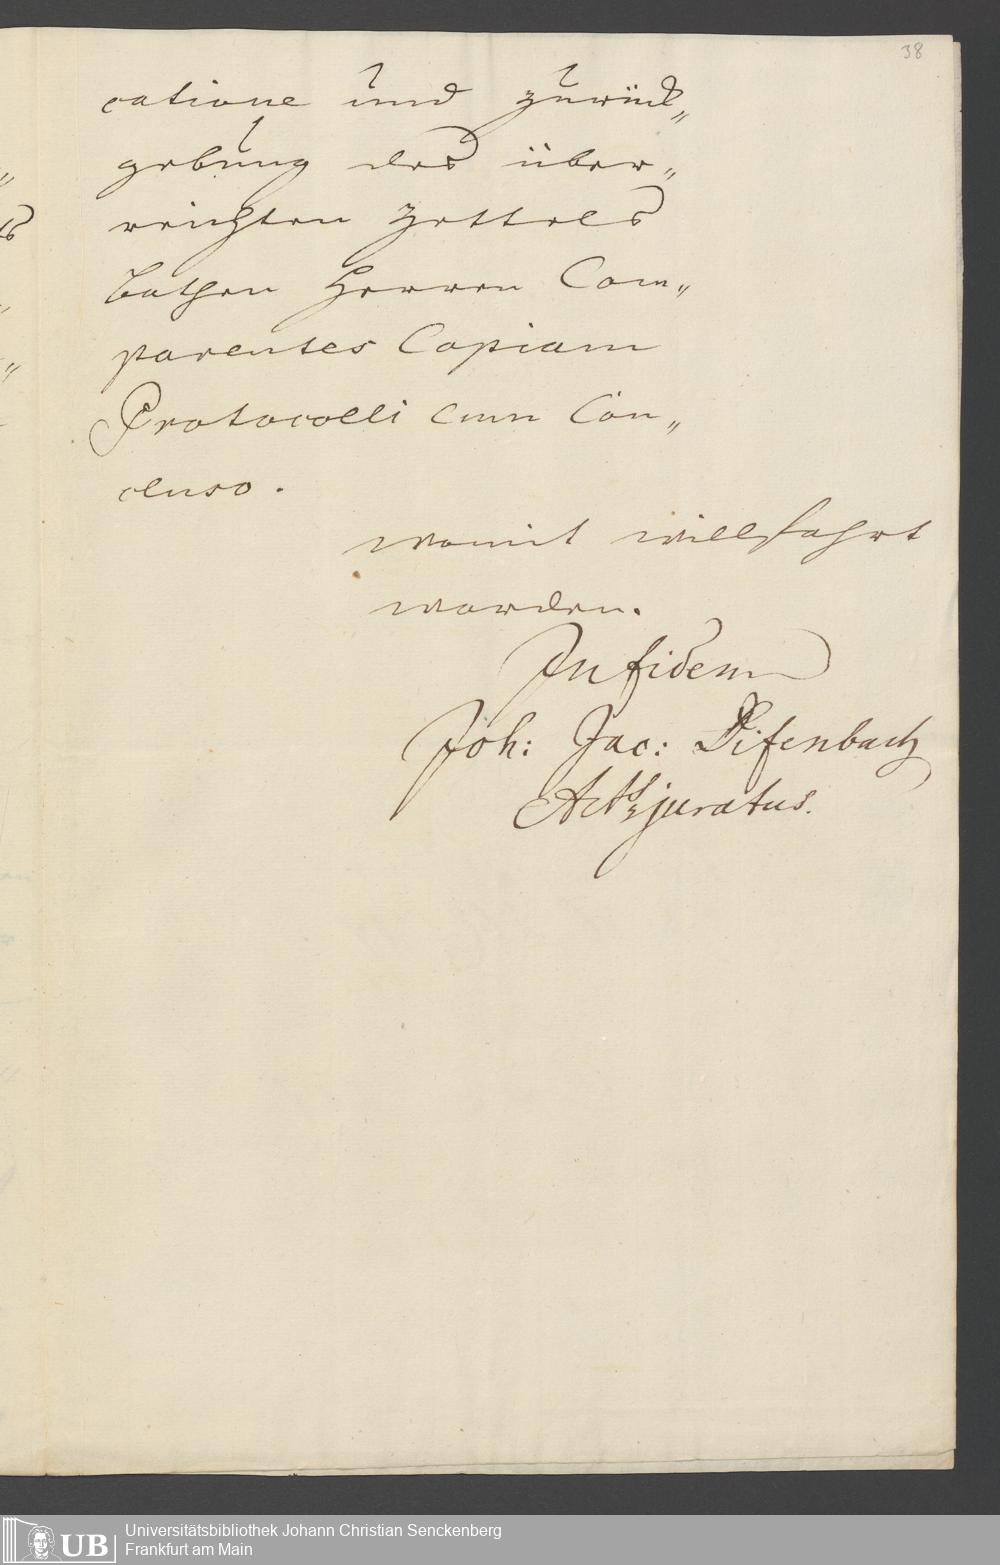 38
catione und zurück„
gebung des über„
reichten Zettels
bathen Herren Com„
parentes Copiam
Protocolli cum Con„
cluso.
womit willfahrt
worden.
In fidem
Joh: Jac: Difenbach
Acts juratus.
UB
Universitätsbibliothek Johann Christian Senckenberg
Frankfurt am Main